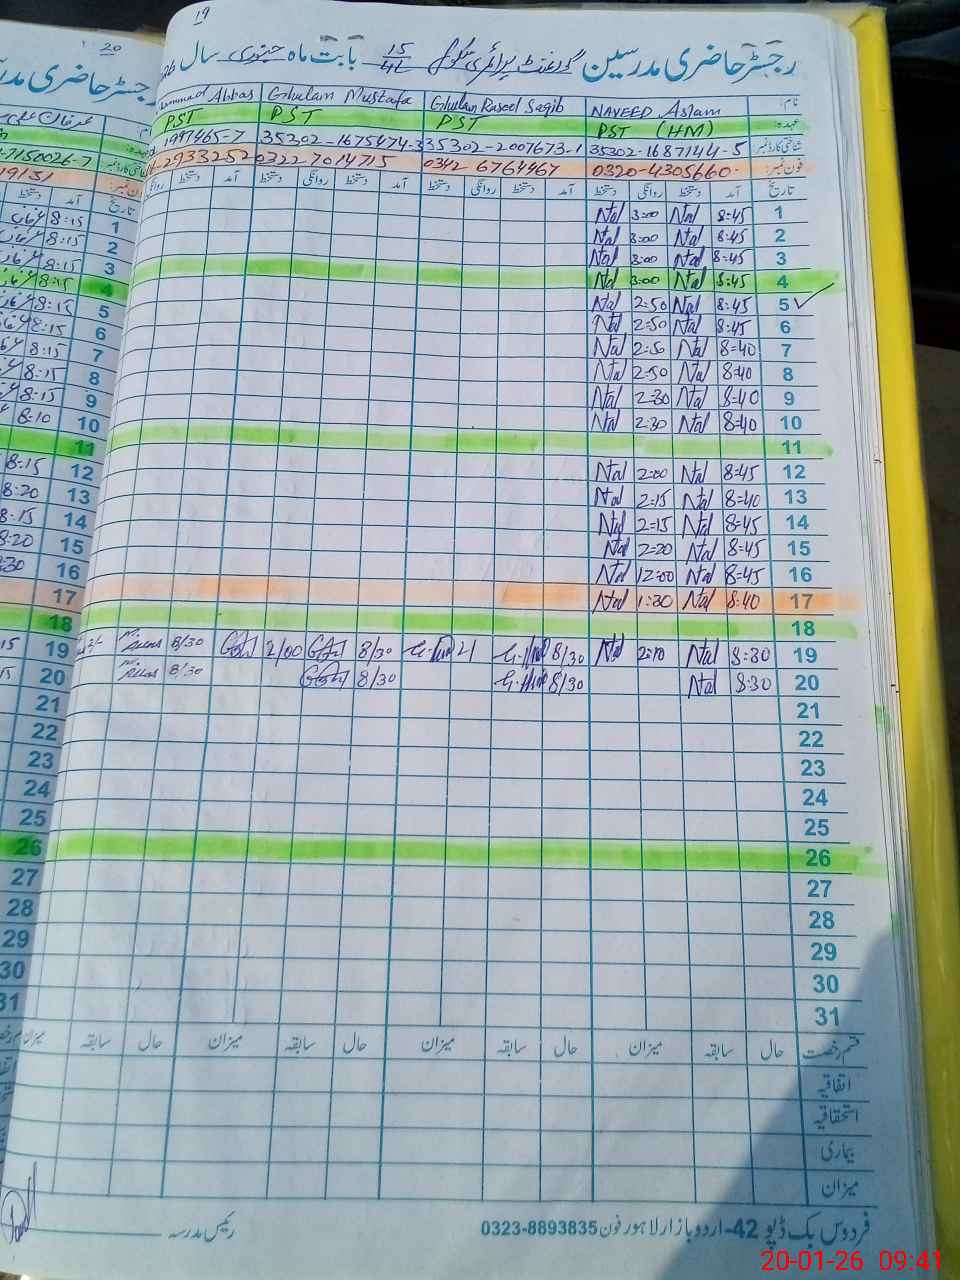 19
رجسٹر حاضری مدرسین گورنمنٹ پرائمری سکول 15/4L بابت ماہ جنوری سال
نام: NAVEED Aslam Ghulam Rasool Saqib Ghulam Mustafa Abbas
عہدہ: PST (HM) PST PST PST
شناختی کارڈ نمبر 35302-1687144-5 35302-2007673-1 35302-1675474-3 1997465-7
فون نمبر: 0320-4305660 0342-6764467 0322-7014715 2933252
تاریخ آمد دستخط روانگی دستخط آمد دستخط روانگی دستخط آمد دستخط روانگی دستخط آمد دستخط روانگی
1 8:45 Nal 3:00 Nal
2 8:45 Nal 3:00 Nal
3 8:45 Nal 3:00 Nal
4 8:45 Nal 3:00 Nal
5 8:45 Nal 2:50 Nal
6 8:45 Nal 2:50 Nal
7 8:40 Nal 2:50 Nal
8 8:40 Nal 2:50 Nal
9 8:40 Nal 2:30 Nal
10 8:40 Nal 2:30 Nal
11
12 8:45 Nal 2:00 Nal
13 8:40 Nal 2:15 Nal
14 8:45 Nal 2:15 Nal
15 8:45 Nal 2:20 Nal
16 8:45 Nal 12:00 Nal
17 8:40 Nal 1:30 Nal
18
19 8:30 Nal 2:10 Nal 8/30 8/30 2/00 8/30
20 8:30 Nal 8/30 8/30 8/30
21
22
23
24
25
26
27
28
29
30
31
قسم رخصت حال سابقہ میزان حال سابقہ میزان حال سابقہ میزان حال سابقہ میزان
اتفاقیہ
استحقاقیہ
بیماری
میزان
رئیس مدرسہ
فردوس بک ڈپو 42-اردو بازار لاہور فون 0323-8893835
20
رجسٹر حاضری مدر
7150026-7
19131
تاریخ آمد دستخط
1 8:15
2 8:15
3 8:15
4 8:15
5 8:15
6 8:15
7 8:15
8 8:15
9 8:15
10 8:10
11
12 8:15
13 8:20
14 8:15
15 8:20
16 :30
17
18
19 15
20 15
21
22
23
24
25
26
27
28
29
30
31
20-01-26 09:41